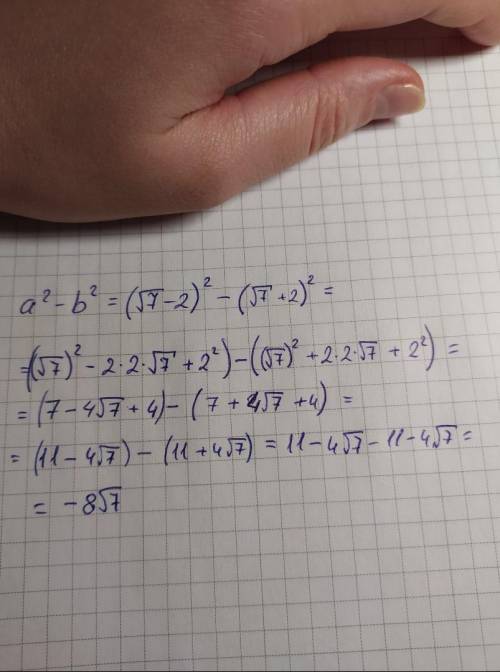 a² - b² = (√7 - 2)² - (√7 + 2)² =
= ((√7)² - 2·2·√7 + 2²) - ((√7)² + 2·2·√7 + 2²) =
= (7 - 4√7 + 4) - (7 + 4√7 + 4) =
= (11 - 4√7) - (11 + 4√7) = 11 - 4√7 - 11 - 4√7 =
= -8√7